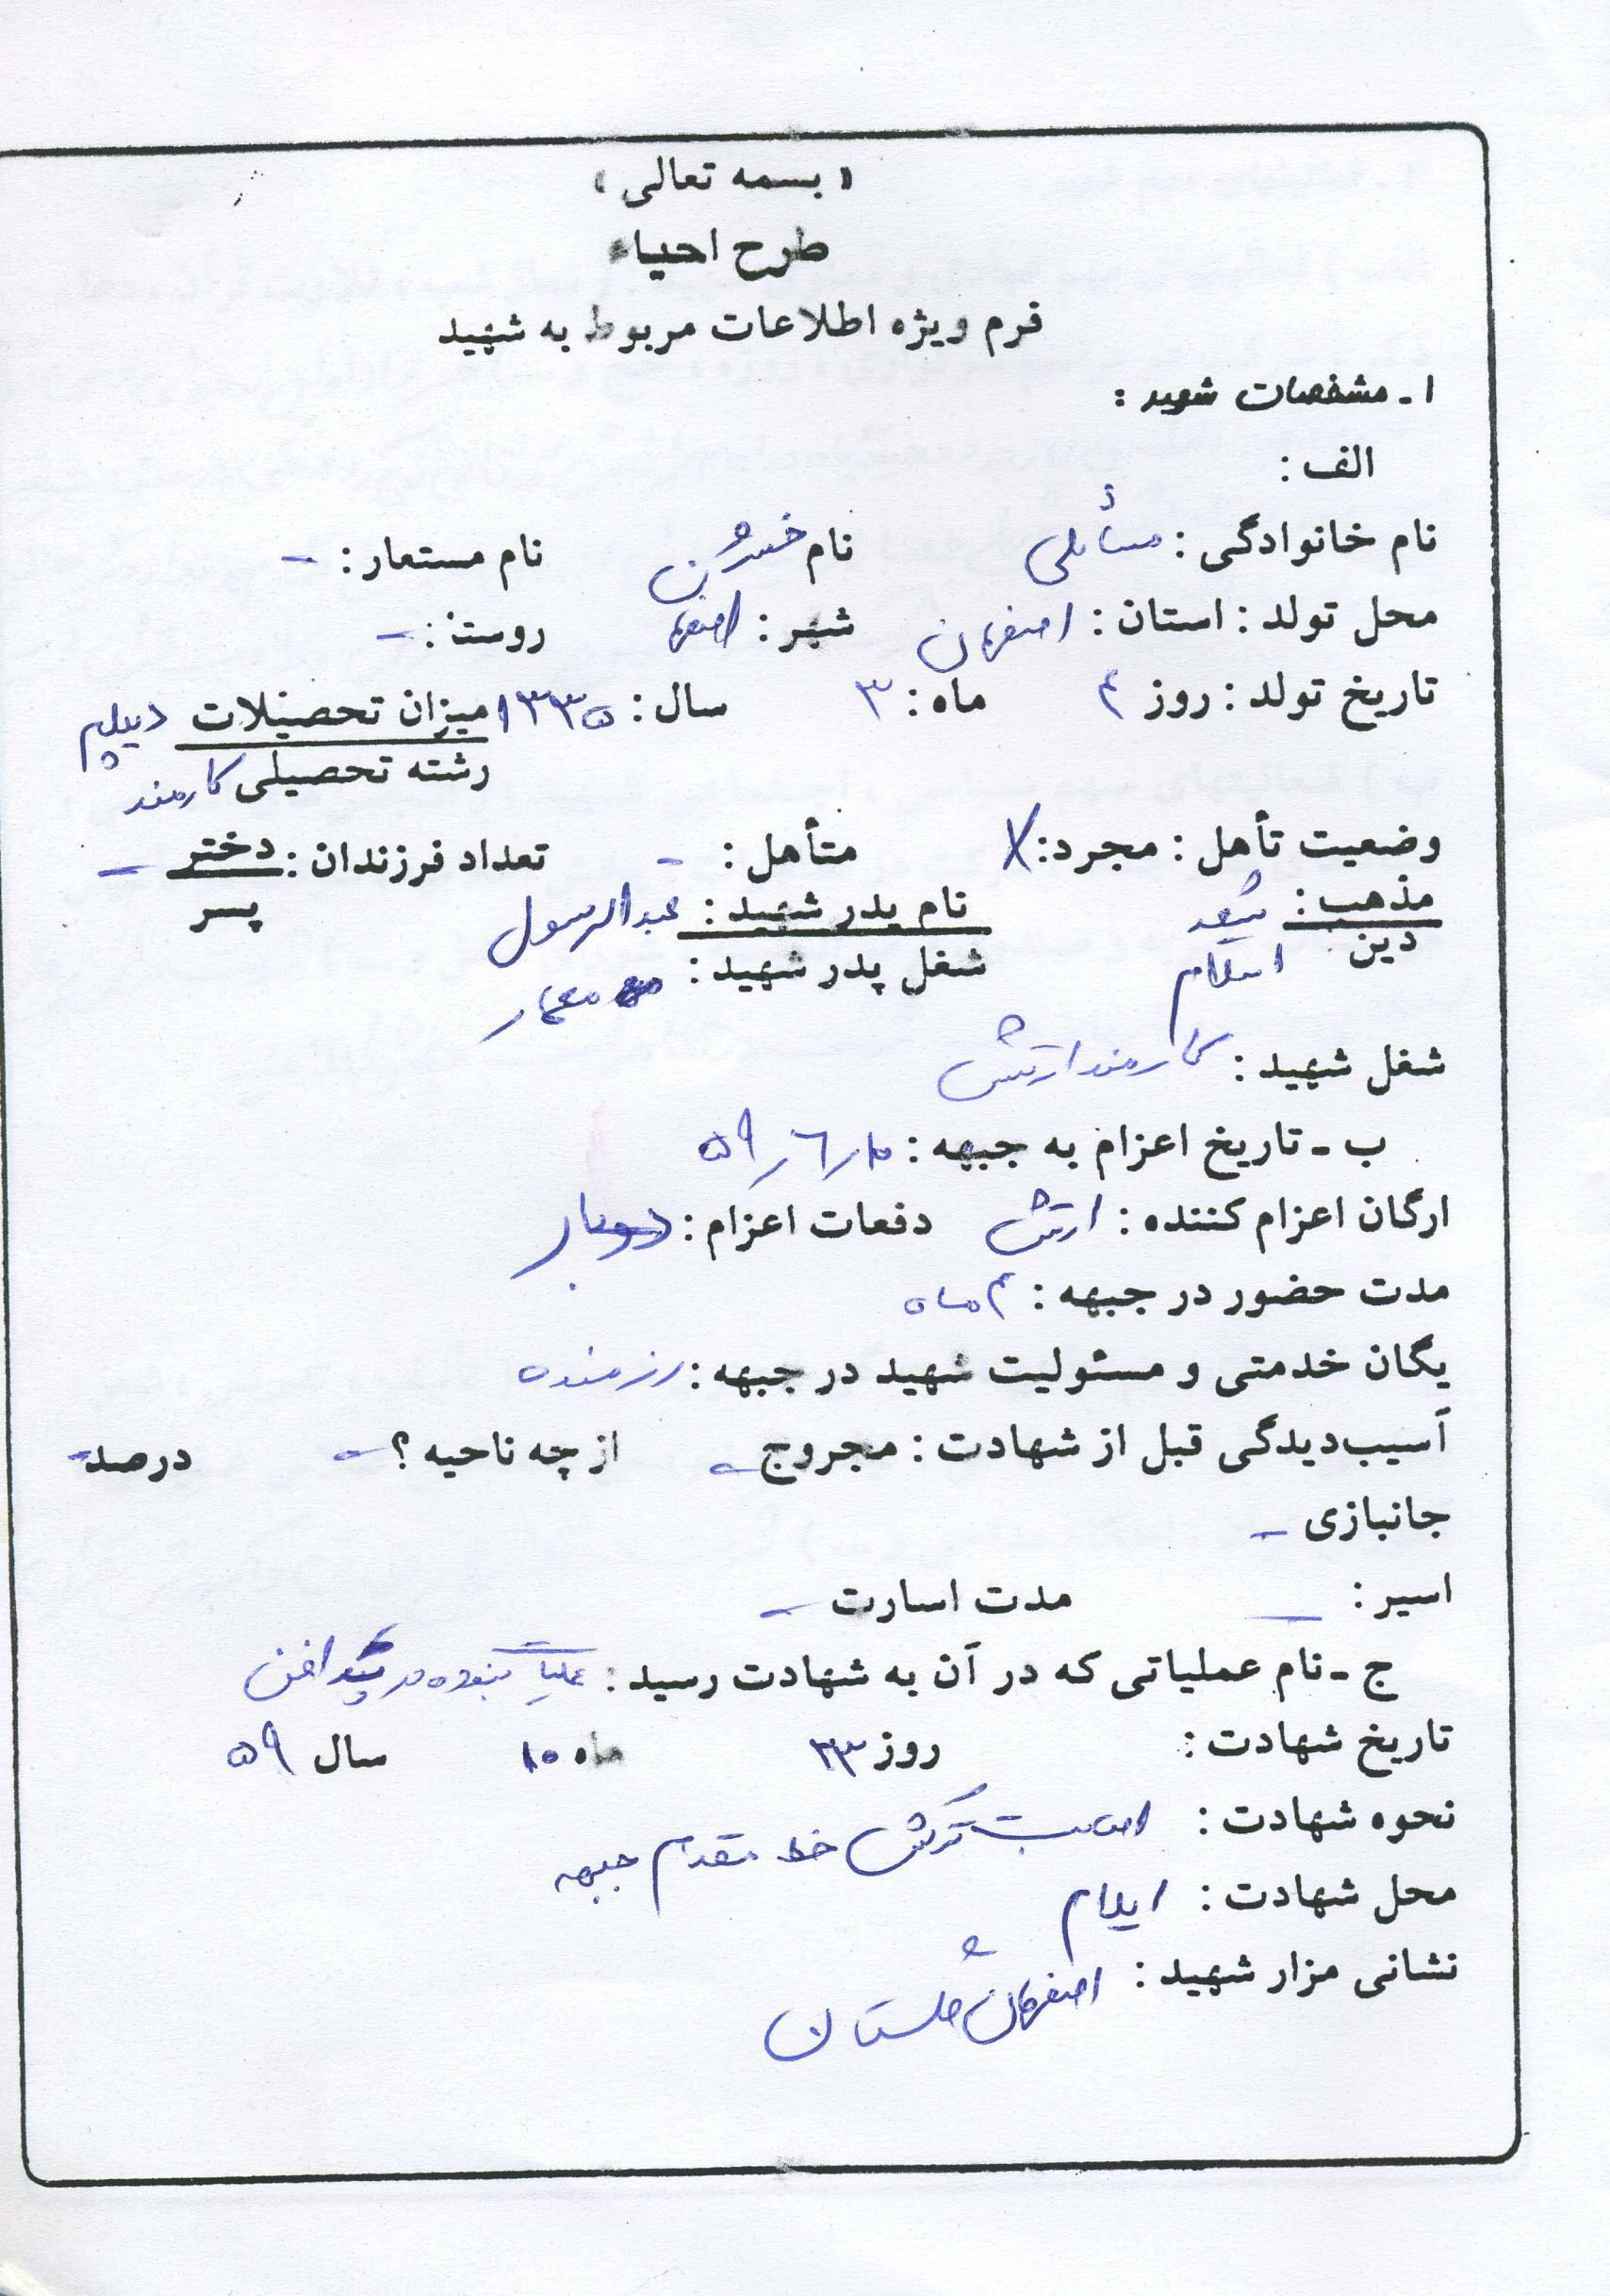 « بسمه تعالی »
طرح احیاء
فرم ویژه اطلاعات مربوط به شهید
۱ ـ مشخصات شهید :
الف :
نام خانوادگی : نام نام مستعار : –
محل تولد : استان : اصفهان شهر : اصفهان روستا : –
تاریخ تولد : روز ۴ ماه : ۳ سال : ۱۳۳۵ میزان تحصیلات دیپلم
رشته تحصیلی کارمند
وضعیت تأهل : مجرد : X متأهل : – تعداد فرزندان : دختر –
پسر
مذهب : شیعه نام پدر شهید : عبدالرسول
دین اسلام شغل پدر شهید : معمار
شغل شهید : کارمند ارتش
ب ـ تاریخ اعزام به جبهه : ۵۹/۶/۱۰
ارگان اعزام کننده : ارتش دفعات اعزام : دوبار
مدت حضور در جبهه : ۴ ماه
یگان خدمتی و مسئولیت شهید در جبهه : رزمنده
آسیب‌دیدگی قبل از شهادت : مجروح – از چه ناحیه ؟ – درصد –
جانبازی –
اسیر : – مدت اسارت –
ج ـ نام عملیاتی که در آن به شهادت رسید : عملیات نبوده در
تاریخ شهادت : روز ۲۳ ماه ۱۰ سال ۵۹
نحوه شهادت : اصابت ترکش خط مقدم جبهه
محل شهادت : ایلام
نشانی مزار شهید : اصفهان گلستان